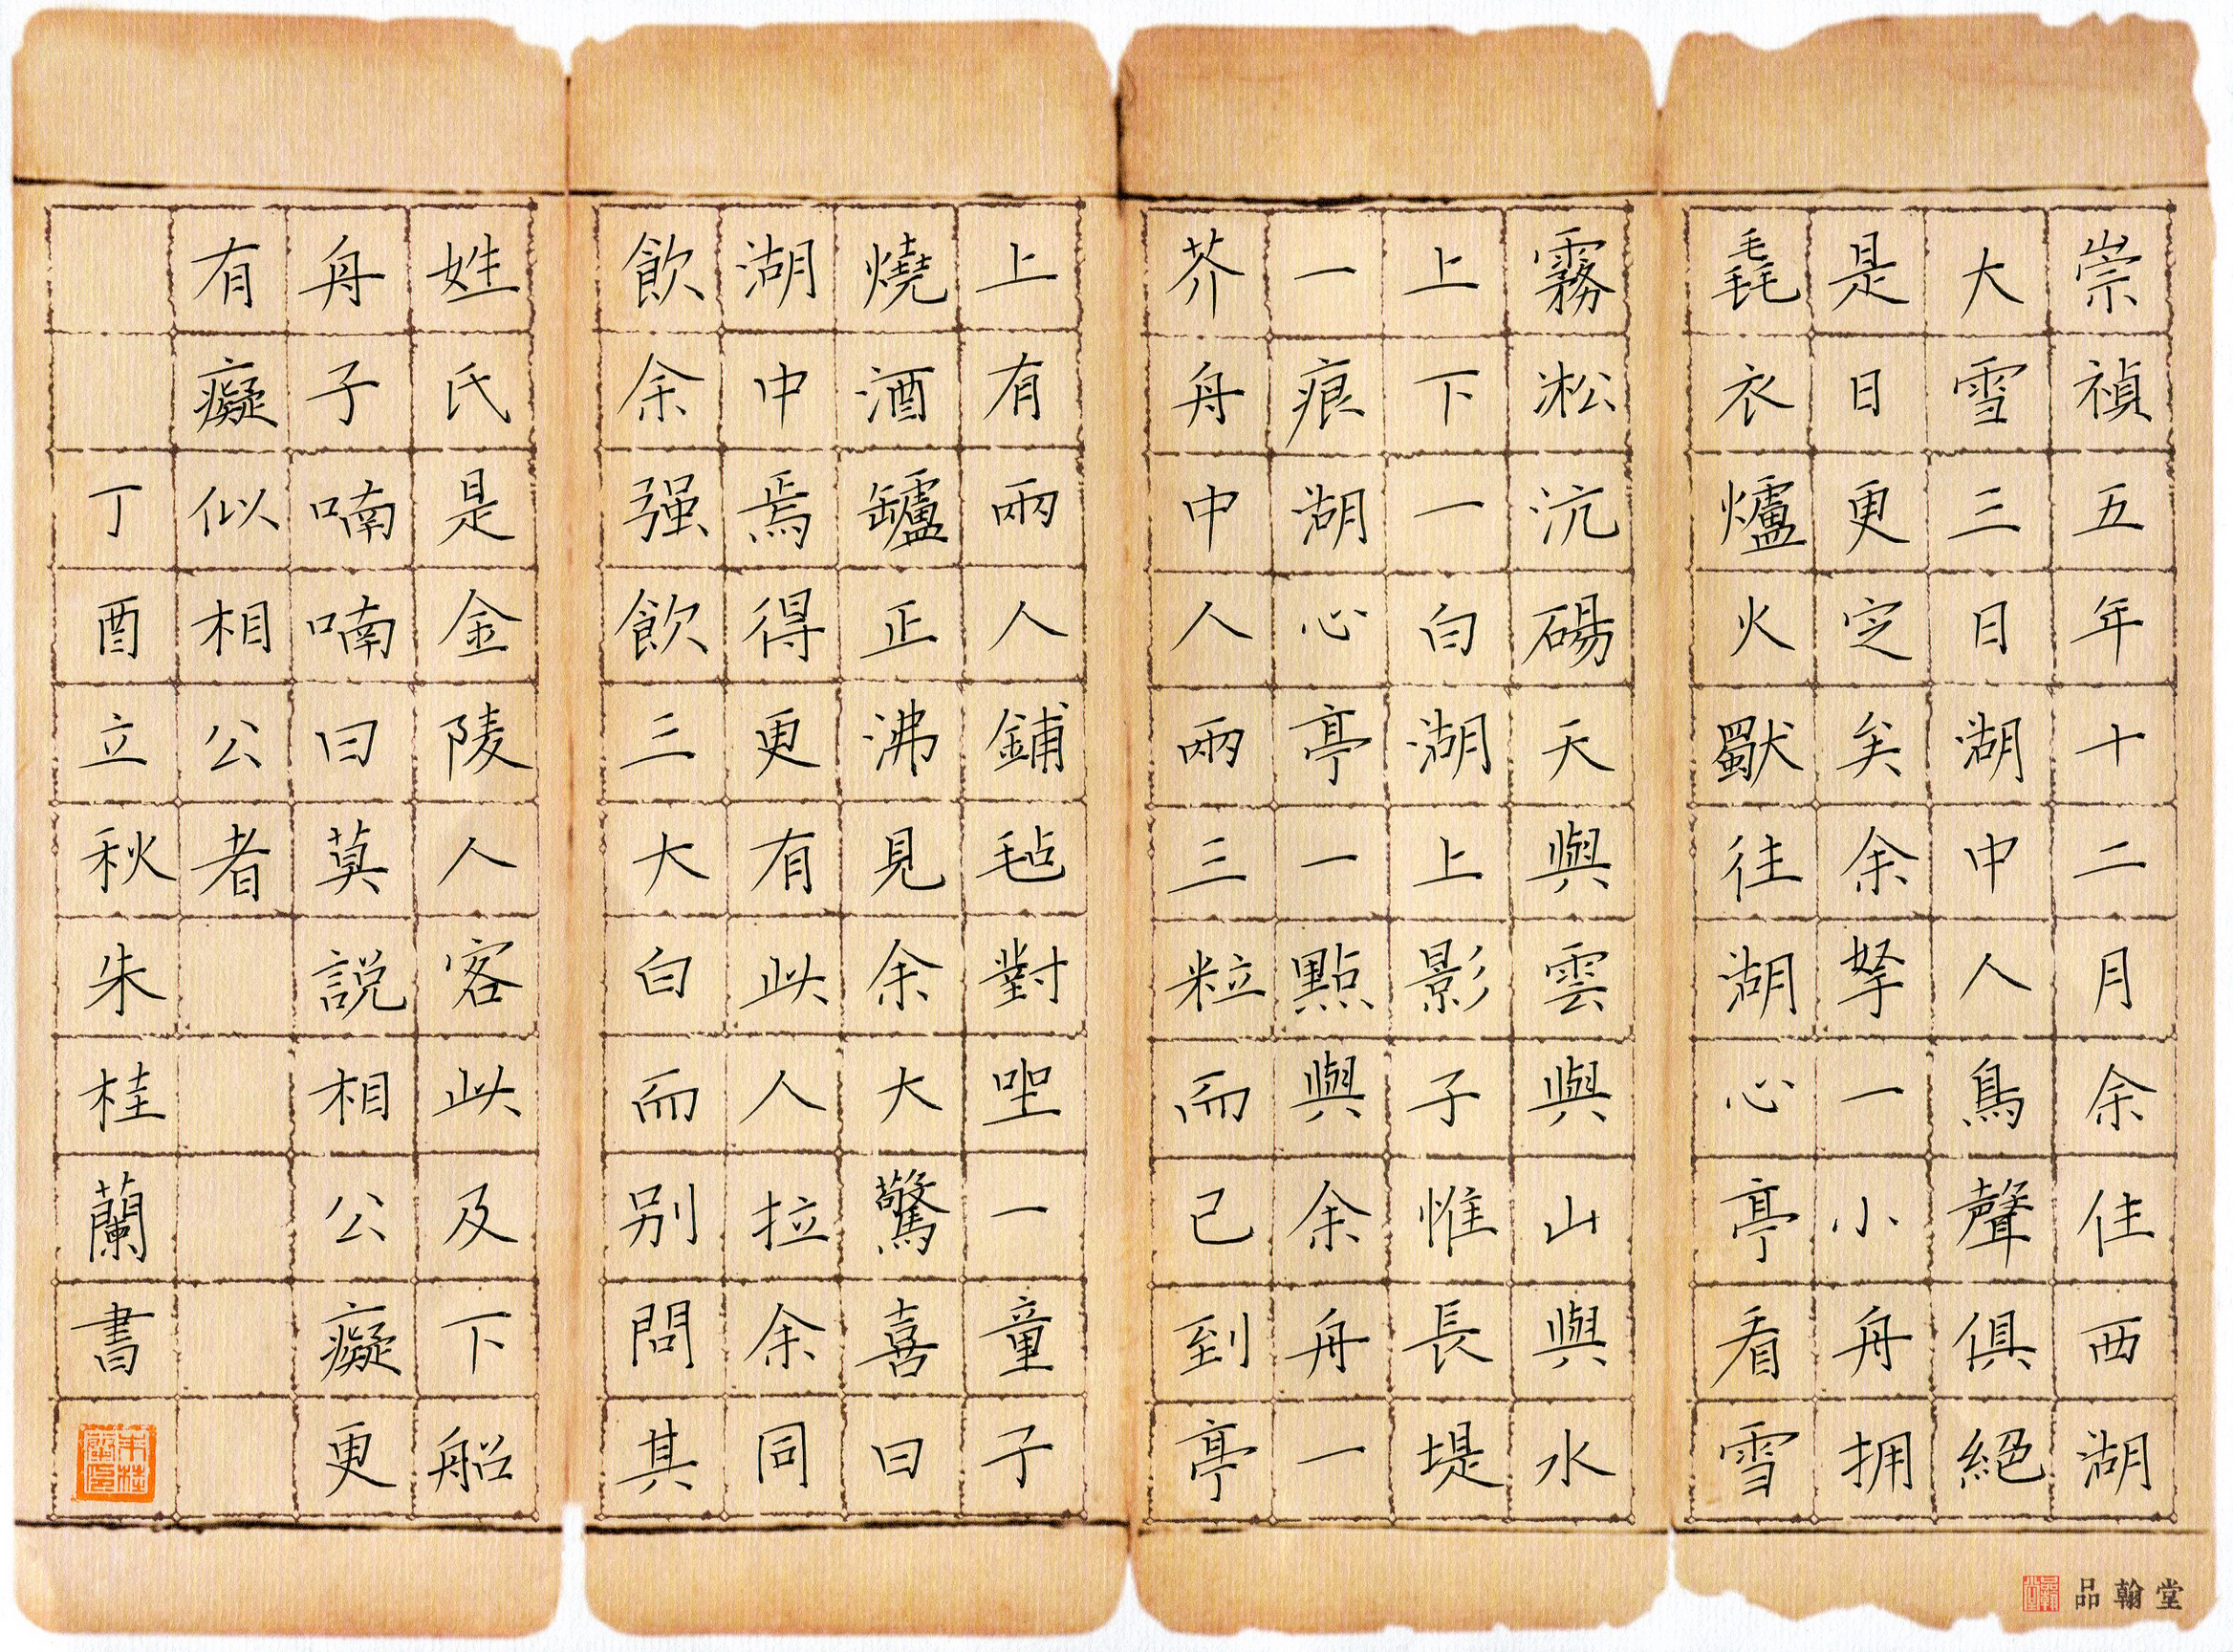 崇禎五年十二月余住西湖
大雪三日湖中人鳥聲俱絕
是日更定矣余拏一小舟拥
毳衣爐火獸往湖心亭看雪
霧淞沆碭天與雲與山與水
上下一白湖上影子惟長堤
一痕湖心亭一點與余舟一
芥舟中人兩三粒而已到亭
上有兩人鋪毡對坐一童子
燒酒罏正沸見余大驚喜曰
湖中焉得更有此人拉余同
飲余强飲三大白而别問其
姓氏是金陵人客此及下船
舟子喃喃曰莫説相公癡更
有癡似相公者
丁酉立秋朱桂蘭書
朱桂蘭印
品翰堂